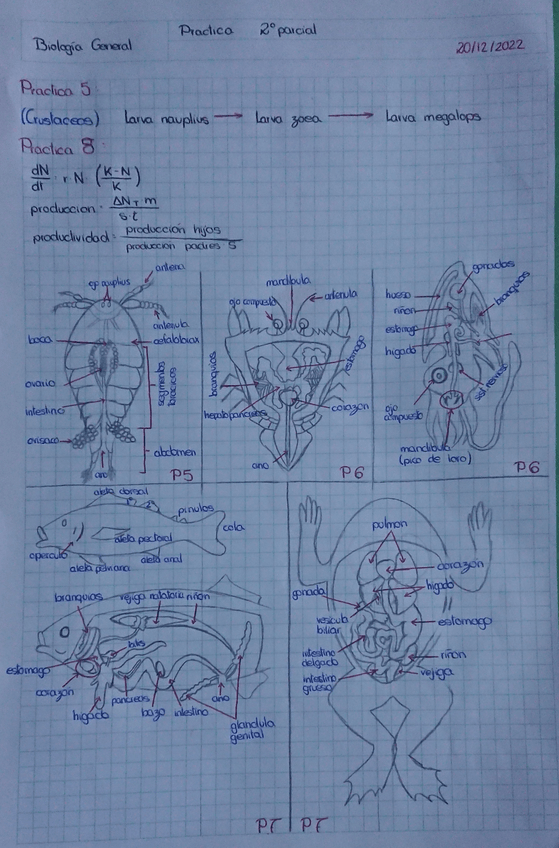 Practica 2º parcial
Biología General
20/12/2022
Practica 5
(Crustaceos) Larva nauplius → Larva zoea → Larva megalops
Practica 8
dN/dt = r N (K-N/K)
produccion = ΔN, m / s·t
productividad = producción hijos / produccion padres s
ojo nauplius
antena
antenula
boca
cefalotorax
ovario
segmentos toracicos
intestino
ovisaco
abdomen
ano
P5
mandibula
ojo compuesto
antenula
branquias
estomago
hepatopancreas
corazon
ano
P6
gonadas
hueso
branquias
riñon
estomago
higado
sist nervioso
ojo compuesto
mandibula
(pico de loro)
P6
aleta dorsal
pinulos
cola
aleta pectoral
operculo
aleta pelviana
aleta anal
branquias
vejiga natatoria
riñon
estomago
corazon
higado
pancreas
bazo
intestino
ano
glandula genital
P7
pulmon
corazón
higado
gonada
vesicula
biliar
estomago
intestino
delgado
riñon
intestino
grueso
vejiga
P7